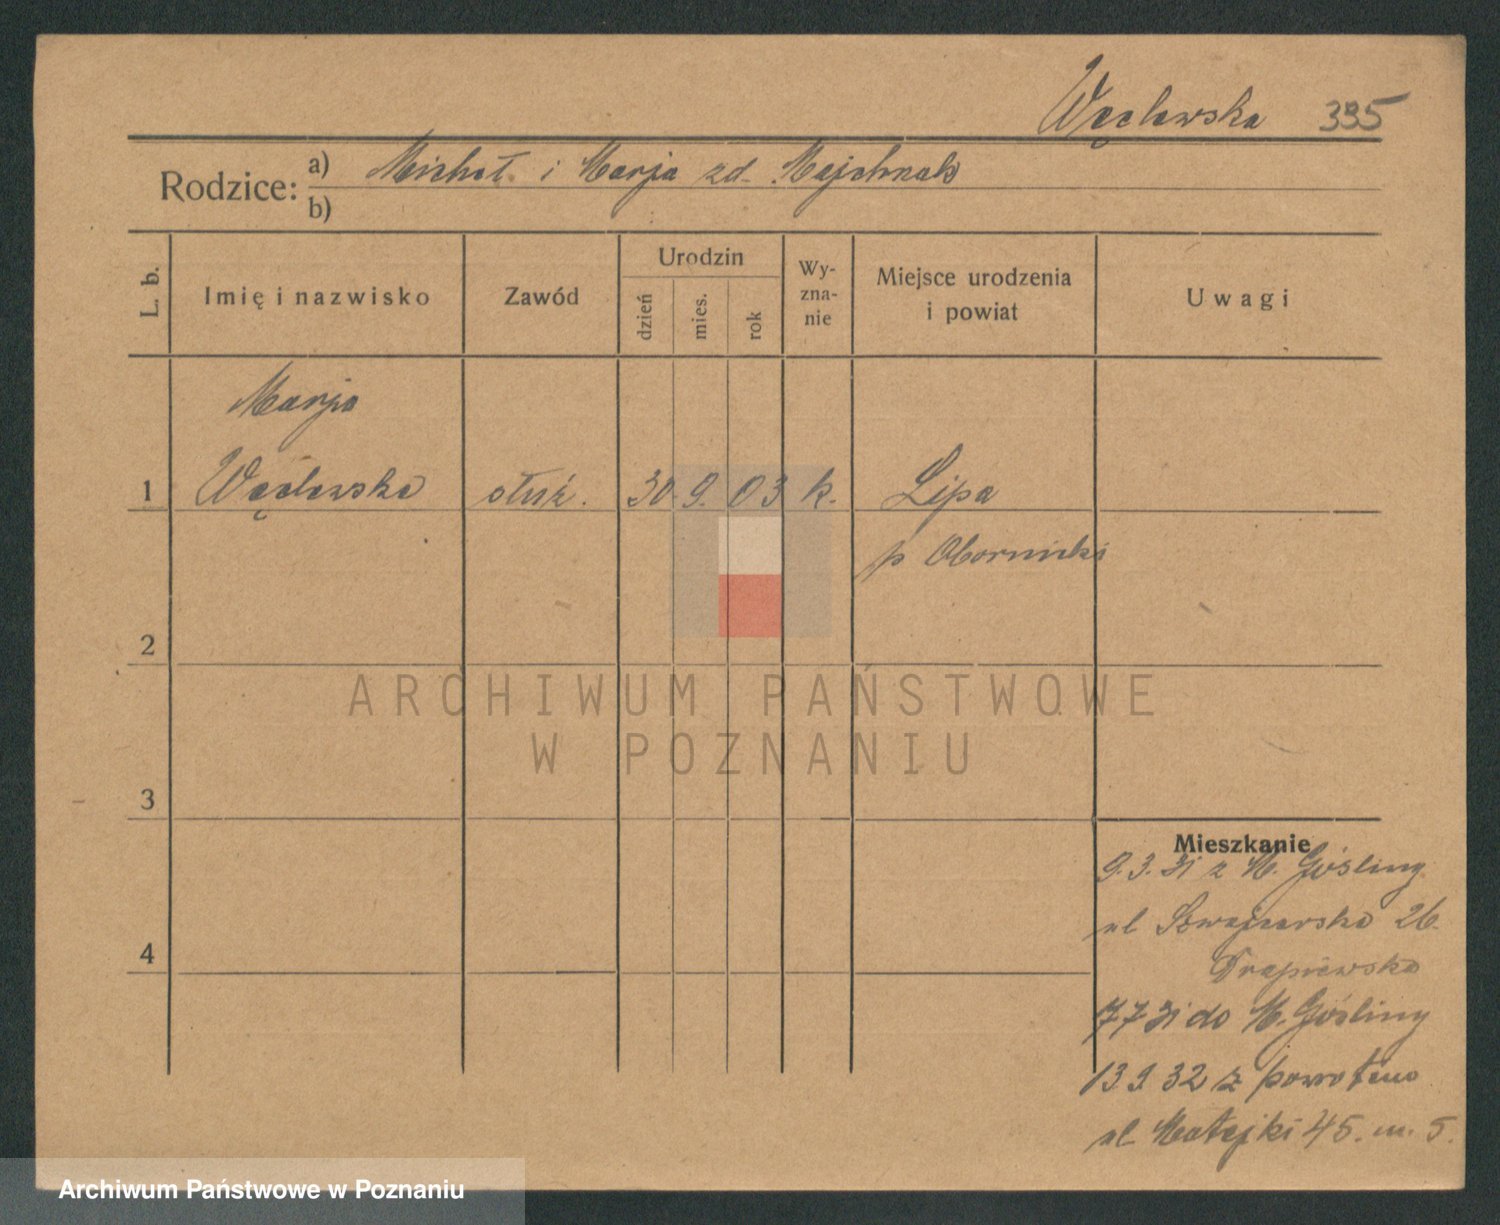 Węclewska 335
Rodzice: a) Michał i Marja zd. Majchrzak
b)
L. b.
Imię i nazwisko
Zawód
Urodzin
dzień
mies.
rok
Wy-
zna-
nie
Miejsce urodzenia
i powiat
Uwagi
Marja
1 Węclewska służ. 30 9. 03 k. Lipa
p Obornicki
2
ARCHIWUM PAŃSTWOWE
W POZNANIU
3
Mieszkanie
9.3.31 z M. Gośliny
ul Szwajcarska 26.
4
7 7 31 do M. Gośliny
13 9 32 z powrotem
ul. Matejki 45. m. 5.
Archiwum Państwowe w Poznaniu